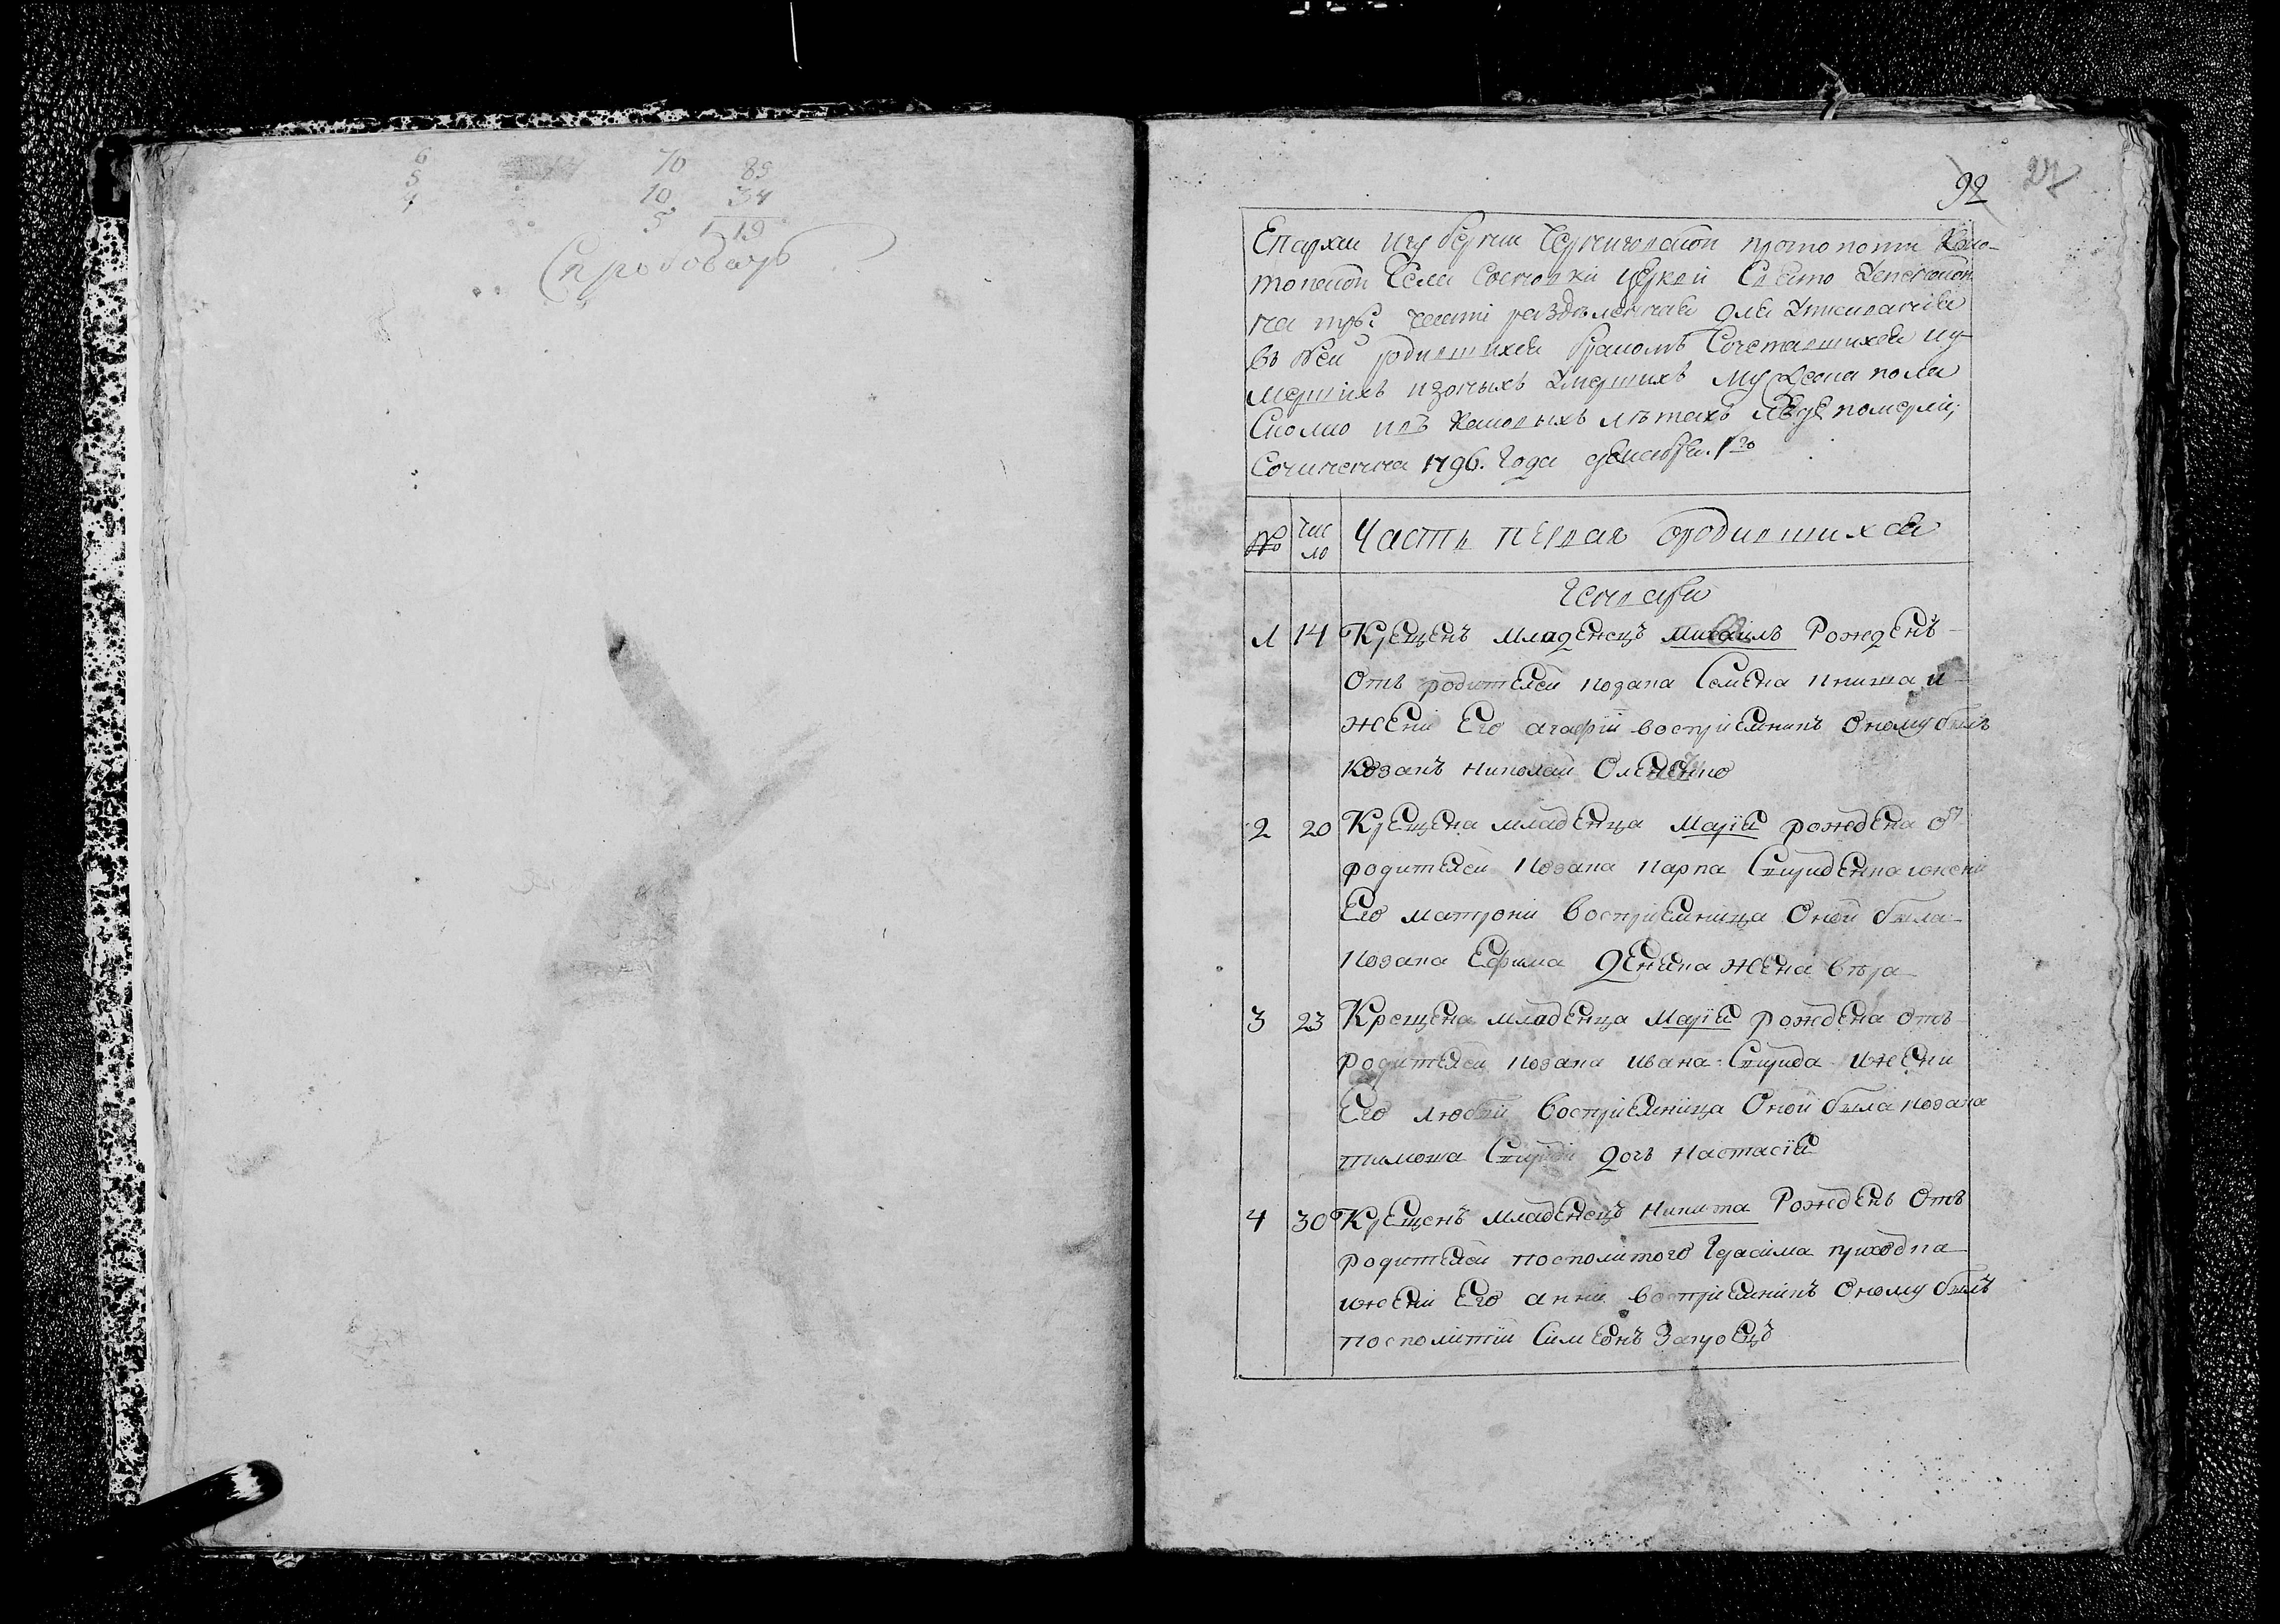 6 70 89
5 10 34
4 5 119
Спробовать
92 27
Епархии и губернии Черниговской протопопии Коно-
топской села Сосновки церкви Свято Успенской
на три части раздѣленная для записания
въ ней родившихся бракомъ сочетавшихся и у-
мершихъ изъ оныхъ умершихъ мужеска пола
сколко и въ каковыхъ лѣтахъ где померли;
Сочиненна 1796. Года декабря. 1го
№ Чис
ло Часть первая о родившихся
Генваря
1 14 Крещенъ младенецъ Михаилъ Рожденъ
Отъ родителей козака Семена и
жени Его агафїи восприемникъ Оному былъ
Козакъ Николай
2 20 Крещена младенца Марїя рождена от
родителей козака Карпа Спириденка и жени
Его матрони восприемница Оной была
козака Ефима жена вѣра
3 23 Крещена младенца Марїя рождена отъ
родителей козака ивана Спирида и жени
Его любви восприемница Оной была козака
тимоша Спириди дочь Настасїя
4 30 Крещенъ младенецъ Никита Рожденъ Отъ
родителей посполитого Герасима приходка
и жени Его анни восприемникъ Оному былъ
посполитїи Симеонъ